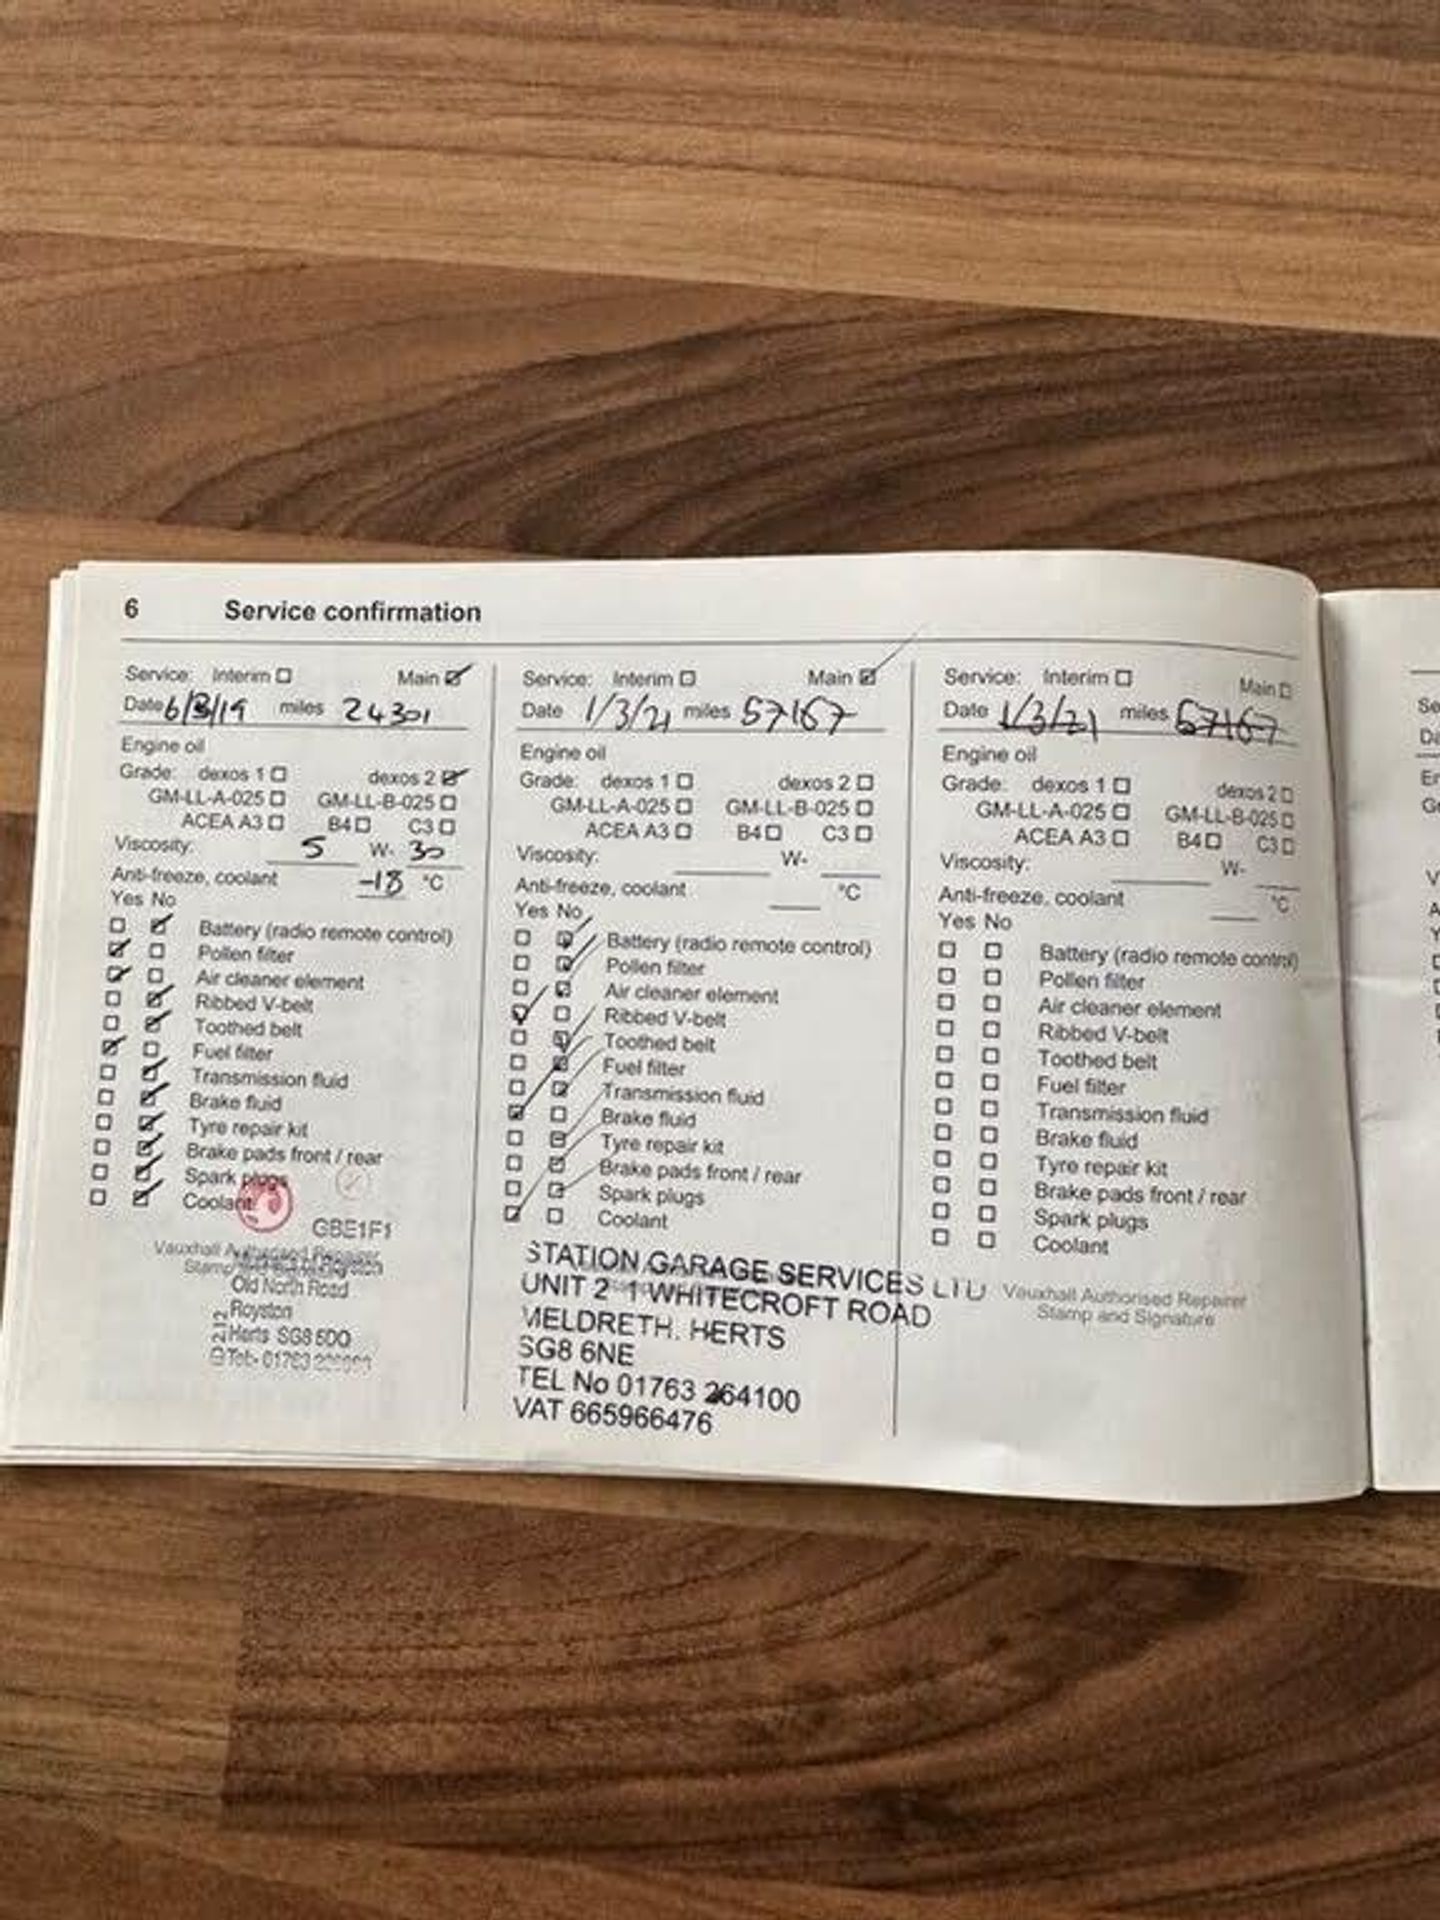 6 Service confirmation
Service: Interim Main
Date 6/3/19 miles 24301
Engine oil
Grade: dexos 1 dexos 2
GM-LL-A-025 GM-LL-B-025
ACEA A3 B4 C3
Viscosity: 5 W- 30
Anti-freeze, coolant -18 °C
Yes No
Battery (radio remote control)
Pollen filter
Air cleaner element
Ribbed V-belt
Toothed belt
Fuel filter
Transmission fluid
Brake fluid
Tyre repair kit
Brake pads front / rear
Spark plugs
Coolant
GBE1F1
Vauxhall Authorised Repairer
Stamp
Old North Road
Royston
Herts SG8 5DQ
Tel- 01763
Service: Interim Main
Date 1/3/21 miles 57167
Engine oil
Grade: dexos 1 dexos 2
GM-LL-A-025 GM-LL-B-025
ACEA A3 B4 C3
Viscosity: W-
Anti-freeze, coolant °C
Yes No
Battery (radio remote control)
Pollen filter
Air cleaner element
Ribbed V-belt
Toothed belt
Fuel filter
Transmission fluid
Brake fluid
Tyre repair kit
Brake pads front / rear
Spark plugs
Coolant
STATION GARAGE SERVICES LTD
UNIT 2 1 WHITECROFT ROAD
MELDRETH. HERTS
SG8 6NE
TEL No 01763 264100
VAT 665966476
Service: Interim Main
Date 1/3/21 miles 57167
Engine oil
Grade: dexos 1 dexos 2
GM-LL-A-025 GM-LL-B-025
ACEA A3 B4 C3
Viscosity: W-
Anti-freeze, coolant °C
Yes No
Battery (radio remote control)
Pollen filter
Air cleaner element
Ribbed V-belt
Toothed belt
Fuel filter
Transmission fluid
Brake fluid
Tyre repair kit
Brake pads front / rear
Spark plugs
Coolant
Vauxhall Authorised Repairer
Stamp and Signature